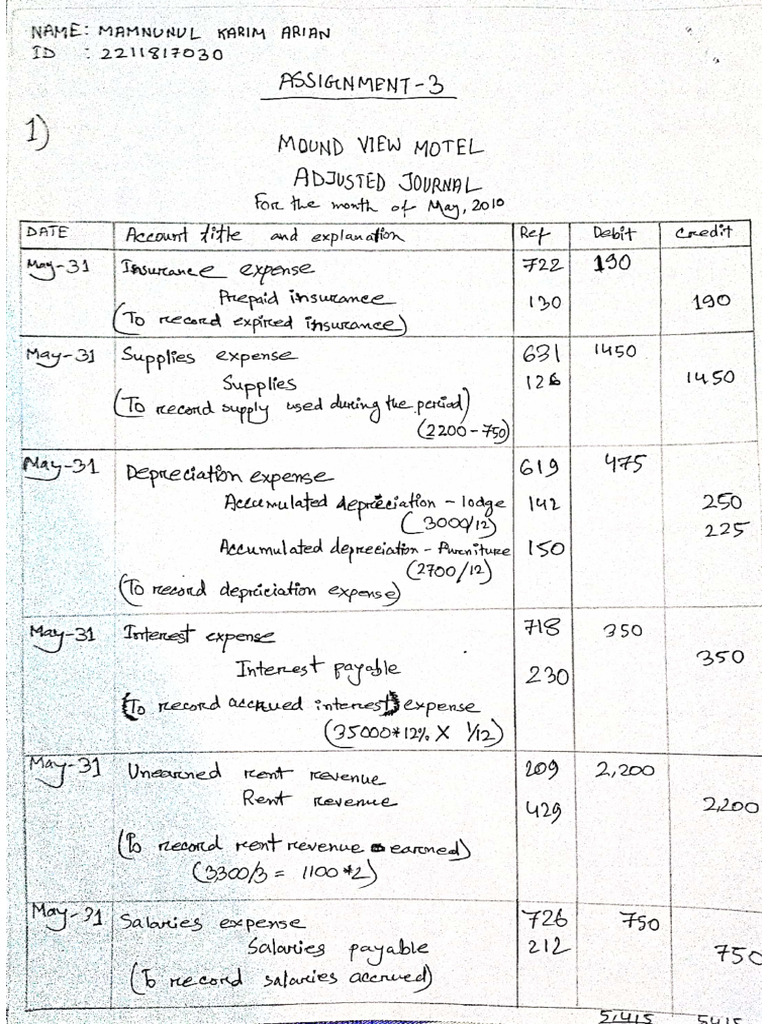 NAME: MAMNUNUL KARIM ARIAN
ID : 2211817030
ASSIGNMENT-3
1)
MOUND VIEW MOTEL
ADJUSTED JOURNAL
For the month of May, 2010
DATE Account title and explanation Ref Debit Credit
May-31 Insurance expense 722 190
Prepaid insurance 130 190
(To record expired insurance)
May-31 Supplies expense 631 1450
Supplies 126 1450
(To record supply used during the period)
(2200-750)
May-31 Depreciation expense 619 475
Accumulated depreciation - lodge 142 250
(3000/12) 225
Accumulated depreciation - Furniture 150
(2700/12)
(To record depriciation expense)
May-31 Interest expense 718 350
Interest payable 230 350
(To record accrued interest) expense
(35000*12% X 1/12)
May-31 Unearned rent revenue 209 2,200
Rent revenue 429 2200
(To record rent revenue earned)
(3300/3 = 1100*2)
May-31 Salaries expense 726 750
Salaries payable 212 750
(To record salaries accrued)
5,415 5415